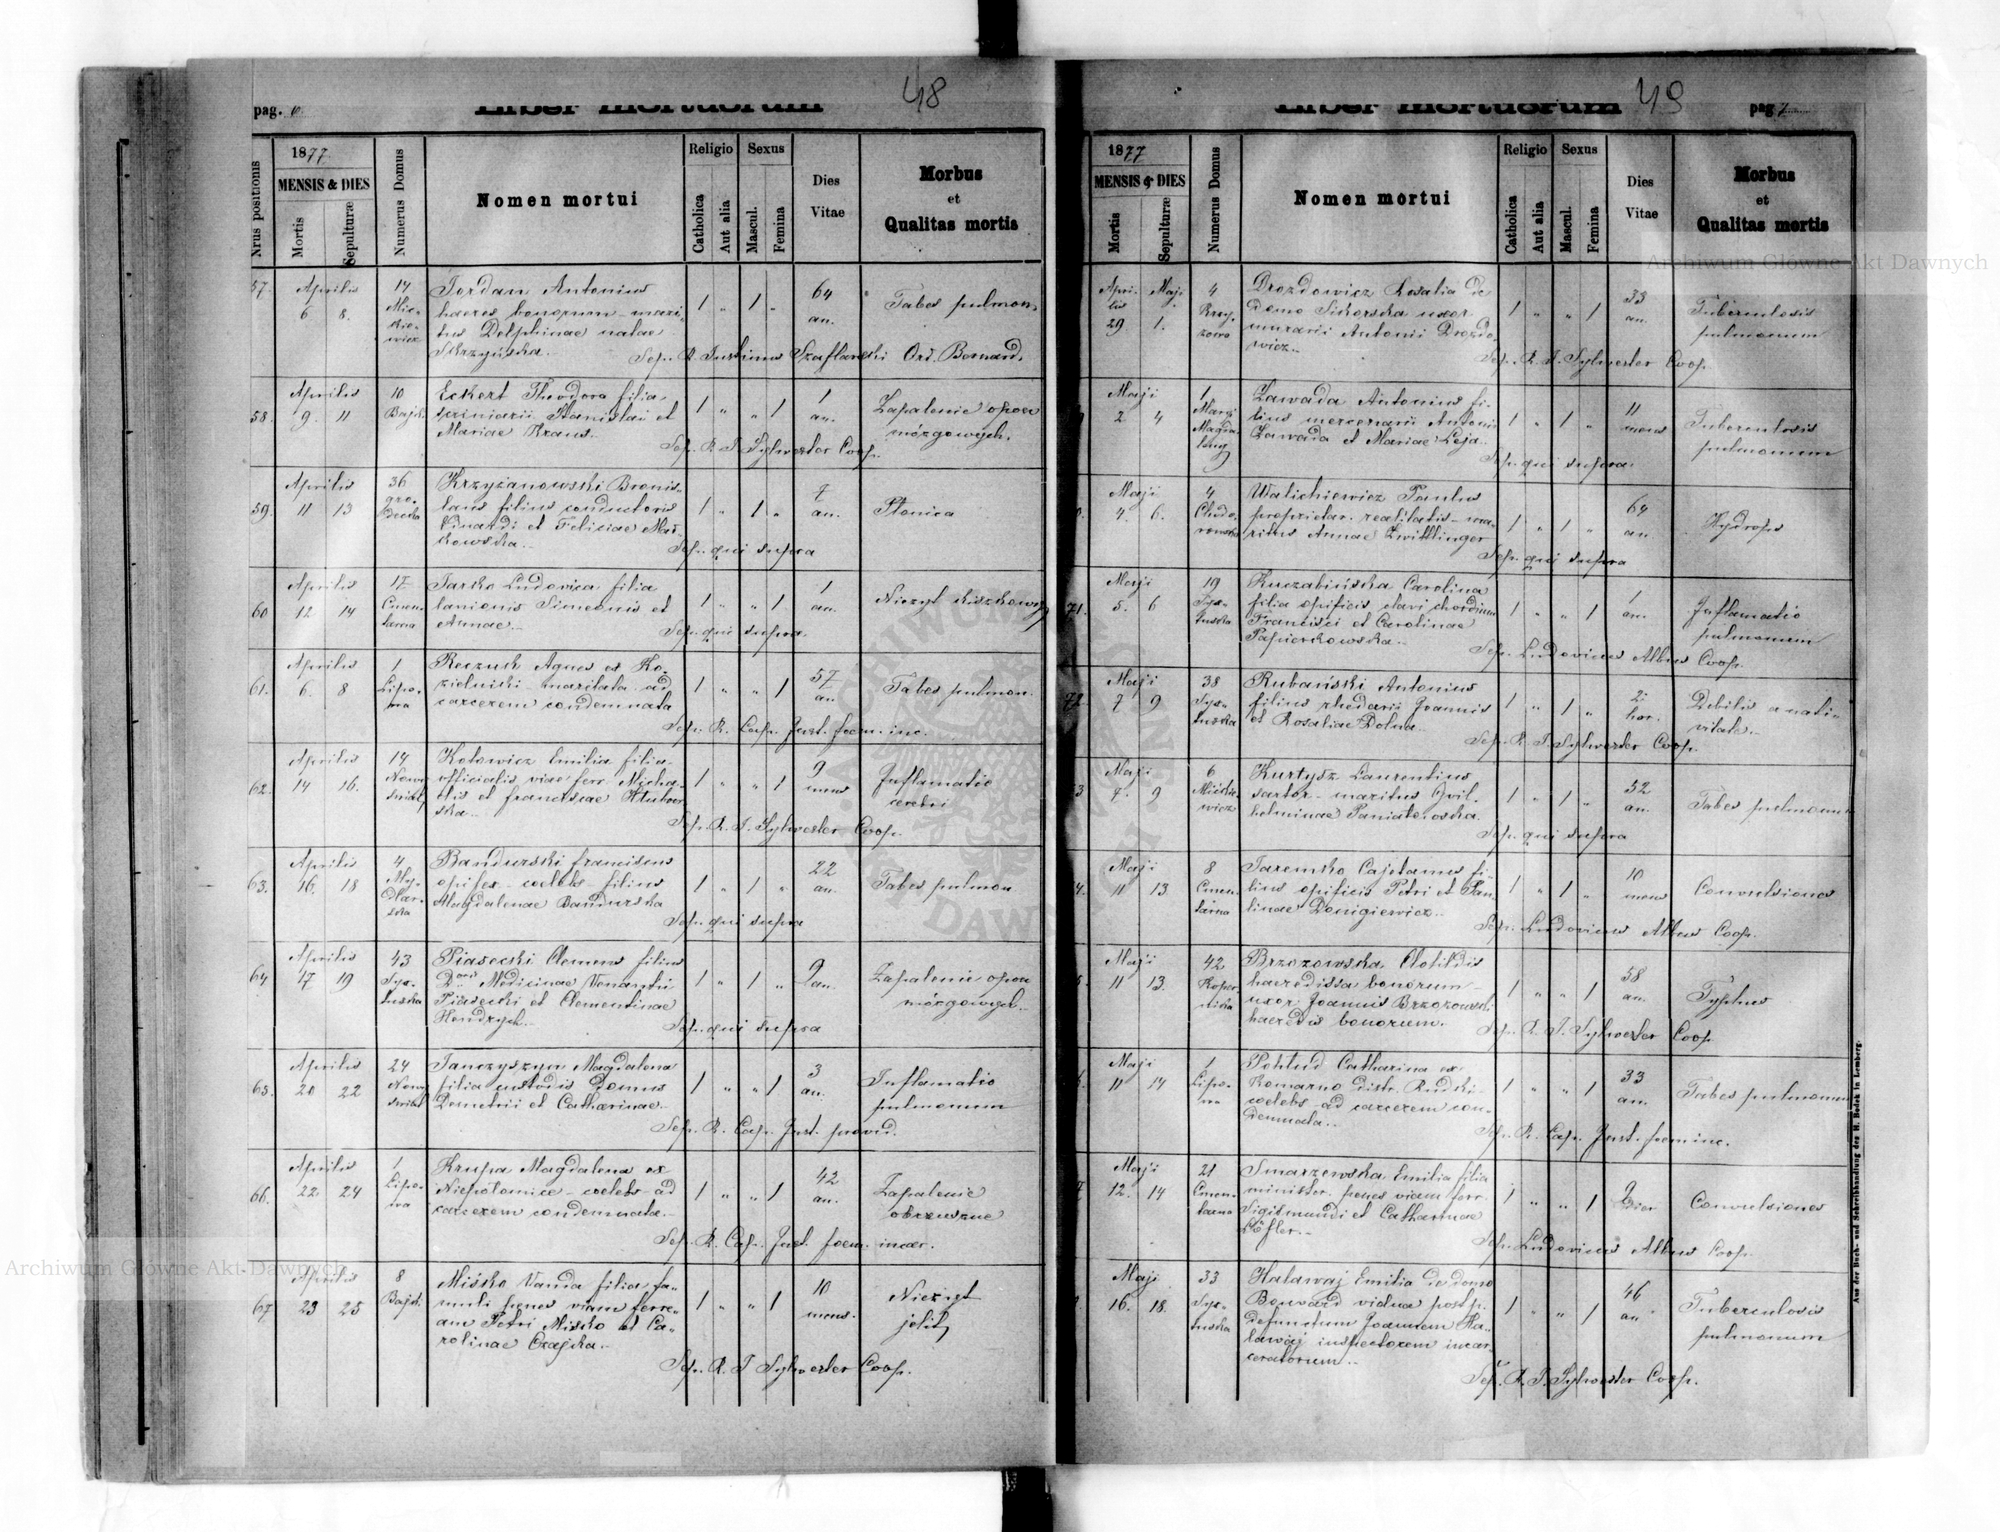 48
pag. 6.
Liber mortuorum
Nrus positionis
1877
MENSIS & DIES
Mortis
Sepulturæ
Numerus Domus
Nomen mortui
Religio
Catholica
Aut alia
Sexus
Mascul.
Femina
Dies
Vitae
Morbus
et
Qualitas mortis
57. Aprilis 6 8. 14 Mic-
kie-
wicz
Jordan Antonius
haeres bonorum – mari-
tus Delphinae natae
Skrzyńska.
1 " 1 " 64
an.
Tabes pulmon.
Sep. R. Justinus Szaflarski Ord. Bernard.
58. Aprilis 9. 11 10
Bajk.
Eckert Theodora filia
Stanislai et
Mariae Kraus.
1 " " 1 1
an.
Zapalenie opon
mózgowych.
Sep. R. J. Sylwester Coop.
59. Aprilis 11 13 36
gro-
decka
Krzyżanowski Bronis-
laus filius conductoris
Eduardi et Feliciae Mač-
kowska.
1 " 1 " 7
an.
Płonica
Sep. qui supra
60 Aprilis 12 14 17
Cmen-
tarna
Jarsko Ludovica filia
lanionis Simeonis et
Annae.
1 " " 1 1
an.
Nieżyt kiszkowy
Sep. qui supra.
61. Aprilis 6. 8 1
Lipo-
wa
Reczuch Agnes ex Ko-
zielniki – maritata – ad
carcerem condemnata
1 " " 1 57
an.
Tabes pulmon.
Sep. R. Cap. Inst. foem. inc.
62. Aprilis 14 16. 14
Nowy
świat
Kotowicz Emilia filia
officialis viae ferr. Micha-
elis et franciscae
ska.
1 " " 1 9
mens
Inflamatio
cerebri
Sep. R. J. Sylwester Coop.
63. Aprilis 16. 18 4
Francisus
opifex – coelebs – filius
Magdalenae Bandurska
1 " 1 " 22
an.
Tabes pulmon
Sep. qui supra
64 Aprilis 17 19 43
Syx-
tuska
Piasecki Clemens filius
Doris Medicinae Venantii
Piasecki et Clementinae
Hendrych.
1 " 1 " 9
an.
Zapalenie opon
mózgowych.
Sep. qui supra
65. Aprilis 20 22 24
Nowy
świat
Janczyszyn Magdalena
filia custodis Domus
Demetrii et Catharinae.
1 " " 1 3
an.
Inflamatio
pulmonum
Sep. R. Cap. Inst. provid.
66. Aprilis 22 24 1
Lipo-
wa
Krupa Magdalena ex
Niepołomice – coelebs – ad
carcerem condemnata.
1 " " 1 42
an.
Zapalenie
obrzuszne
Sep. R. Cap. Inst. foem. incar.
67 Aprilis 23 25 8
Bajk.
Miśko Vanda filia fa-
muli penes viam ferre-
am Petri Miśko et Ca-
rolinae Czajka.
1 " " 1 10
mens.
Nieżyt
jelit
Sep. R. J Sylwester Coop.
49
pag 7
Liber mortuorum
1877
MENSIS & DIES
Mortis
Sepulturæ
Numerus Domus
Nomen mortui
Religio
Catholica
Aut alia
Sexus
Mascul.
Femina
Dies
Vitae
Morbus
et
Qualitas mortis
Apri-
lis
29 Maji
1. 4
Drozdowicz Rosalia de
domo Sikorska uxor
murarii Antonii Drozdo-
wicz.
1 " " 1 33
an.
Tuberculosis
pulmonum
Sep. R. J. Sylwester Coop.
Maji 2 4 1
Marii
Magda-
leny
Zawada Antonius fi-
lius mercenarii Antonii
Zawada et Mariae Leja.
1 " 1 " 11
mens
Tuberculosis
pulmonum
Sep. qui supra.
Maji 4. 6. 4
Chodo-
rowska
Walichiewicz Paulus
proprietar. realitatis – ma-
ritus Annae Zwittlinger
1 " 1 " 64
an.
Hydrops
Sep. qui supra
71. Maji 5. 6 19
Syx-
tuska
Kuczabińska Carolina
filia opificis clavichordium
Francisci et Carolinae
Papierkowska.
1 " " 1 1
an.
Inflamatio
pulmonum
Sep. Ludovicus Albus Coop.
72. Maji 7 9 38
Syx-
tuska
Rubański Antonius
filius rhedarii Joannis
et Rosaliae Dolna.
1 " 1 " 2
hor.
Debilis a nati-
vitate.
Sep. R. J. Sylwester Coop.
Maji 7. 9 6
Mickie-
wicz
Kurtysz Laurentius
sartor – maritus Guil-
helminae
1 " 1 " 52
an.
Tabes pulmonum
Sep. qui supra
Maji 11 13 8
Cmen-
tarna
Jaremko Cajetanus fi-
lius opificis Petri et Pau-
linae Donigiewicz.
1 " 1 " 10
mens
Convulsiones
Sep. Ludovicus Albus Coop.
Maji 11 13. 42
Koper-
nika
Brzozowska Clotildis
haeredissa bonorum –
uxor Joannis Brzozowski
haeredis bonorum.
1 " " 1 58
an.
Typhus
Sep. R. J. Sylwester Coop
Maji 11 14 1
Lipo-
wa
Pohlud Catharina ex
Komarno distr. Rudki –
coelebs – ad carcerem con-
demnata.
1 " " 1 33
an.
Tabes pulmonum
Sep. R. Cap. Inst. foem inc.
Maji 12. 14 21
Cmen-
tarna
Smarzewska Emilia filia
minister. penes viam ferr.
Sigismundi et Catharinae
Löfler.
1 " " 1 9
dier
Convulsiones
Sep. Ludovicus Albus Coop.
Maji 16. 18. 33
Syx-
tuska
Haławaj Emilia de domo
Bouvard vidua post p.
defunctum Joannem Ha-
ławaj inspectorem incar-
ceratorum.
1 " " 1 46
an
Tuberculosis
pulmonum
Sep. R. J. Sylwester Coop.
Aus der Buch- und Schreibhandlung des H. Bodek in Lemberg.
Archiwum Główne Akt Dawnych
Archiwum Główne Akt Dawnych